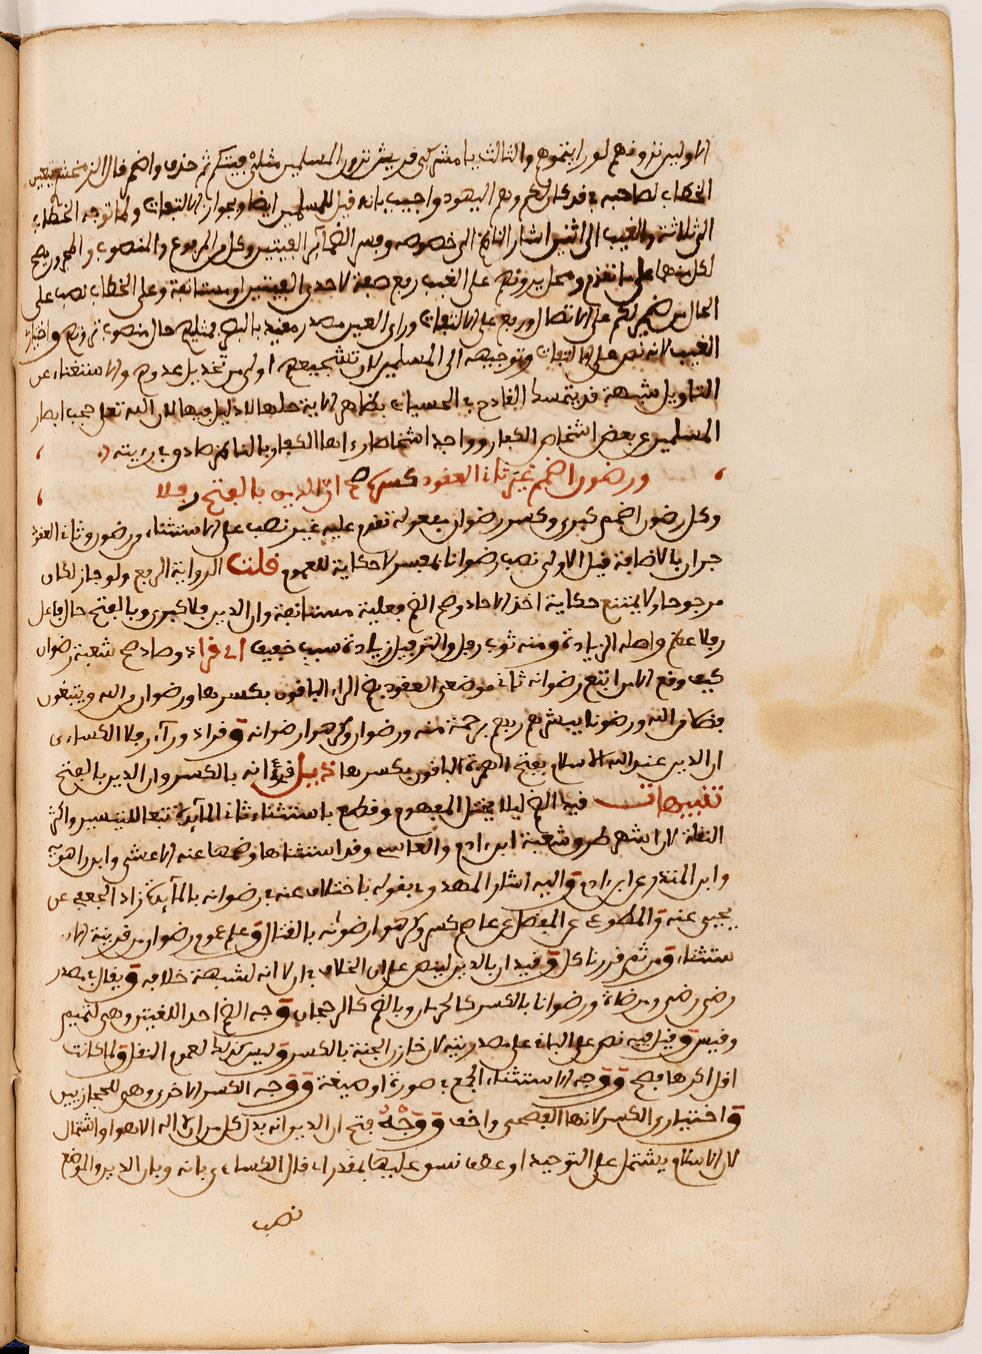 الاولين ترونهم لو رايتموهم والثالث يا مشركي قريش ترون المسلمين مثلي فيتكم ثم حذف واضمر قال الزمخشري
الخطاب لصاحبه في قد كان لكم ومع اليهود واجيب بانه قيل للمسلمين ايضا وبجواز الالتفات ولما توجه الخطاب
الى ثلاثة والغيب الى اثنين اشار الناظم الى خصوصه وفسر الضمائر الفيتين وكل من المرفوع والمنصوب والمجرور يصح
لكل منهما على ما تقدم ومحل يرونهم على الغيب رفع صفة لاحدى الفيتين او مستانفة وعلى الخطاب نصب على
الحال من ضمير لكم على الاتصال ورفع على الالتفات وراي العين مصدر مقيد بالبصر فمثليهم حال منصوب ترونهم واختياري
الغيب لانه نص على الالتفات وتوجيهه الى المسلمين لان تشجيعهم اولى من تخذيل عدوهم والاستغناء عن
التاويل شبهة قد يتمسك القادح في الحسيات بظاهر الاية حلها لا دليل فيها لان الله تعلى حجب ابصار
المسلمين عن بعض اشخاص الكفار وواحدا شخاصا راءها الكفار بالناظر صادق في رءيته
ورضوان اضمم غير ثاني العقود كسره صح ان الدين بالفتح رفلا
وكل رضوان اضمم كبرى وكسر رضوان مفعوله تقدم عليه غير نصب على الاستثناء ورضوان وثاني العقود
جران بالاضافة قيل الاولى نصب رضوانا لمفسر لا حكاية للعموم قلت الرواية الرفع ولو جاز لكان
مرجوحا ولا يمتنع حكاية اخذ الاحاد وصح الضم فعلية مستانفة وان الدين رفلا كبرى وبالفتح حال فاعل
رفلا عظم واصله الزيادة ومنه ثوب رفل والترفيل زيادة سبب خفيف اي قراء ذو صاد صح شعبة رضوان
كيف وقع الا من اتبع رضوانه ثاني موضعي العقود بضم الراء الباقون بكسرها ورضوان من الله ويبتغون
فضلا من الله ورضوانا يبشرهم ربهم برحمة منه ورضوان وكرهوا رضوانه وقراء ذو راء رفلا الكساءي
ان الدين عند الله الاسلام بفتح الهمزة الباقون بكسرها ذيل قرئ انه بالكسر وان الدين بالفتح
تنبيهات قيد الضم ليلا يختل المفهوم وقطع باستثناء ثاني المائدة تبعا للتيسير واكثر
النقلة لان اشهر طرق شعبة ابن ءادم والعباسي وقد استثناها وضمها عنه الاعشى وابن راهويه
وابن المنذر عن ابن ءادم واليه اشار المهدوي بقوله باختلاف عنه في رضوانه بالمائدة زاد الجعفي عن
يحيى عنه والمطوعي عن المفضل عن عاصم كسر وكرهوا رضوانه بالقتال وعلم عموم رضوان من قرينة الا
ستثناء ومن ثم قدرنا كل وقيد ان بالدين لينص على ان الخلاف في ان لا انه لشبهة خلافه ويقال في مصدر
رضي رضى ومرضاة ورضوانا بالكسر كالحرمان وبالضم كالرجحان وجه الضم احد اللغتين وهي لتميم
وقيس وقيل فيه نص على الباقي على مصدريته لان خازن الجنة بالكسر وليس كذلك لعموم النقل ولما كانت
اقل اكثرها فصح ووجه الاستثناء الجمع في صورة او صيغة ووجه الكسر الاخرى وهي للحجازيين
واختياري الكسر لانها الفصحى واخف ووجه فتح ان الدين انه بدل كل من انه لا اله الا هو او اشتمال
لان الاسلام يشتمل على التوحيد او عطف نسق عليها بمقدر اي قال الكساءي بانه وبان الدين والموضع
نصب